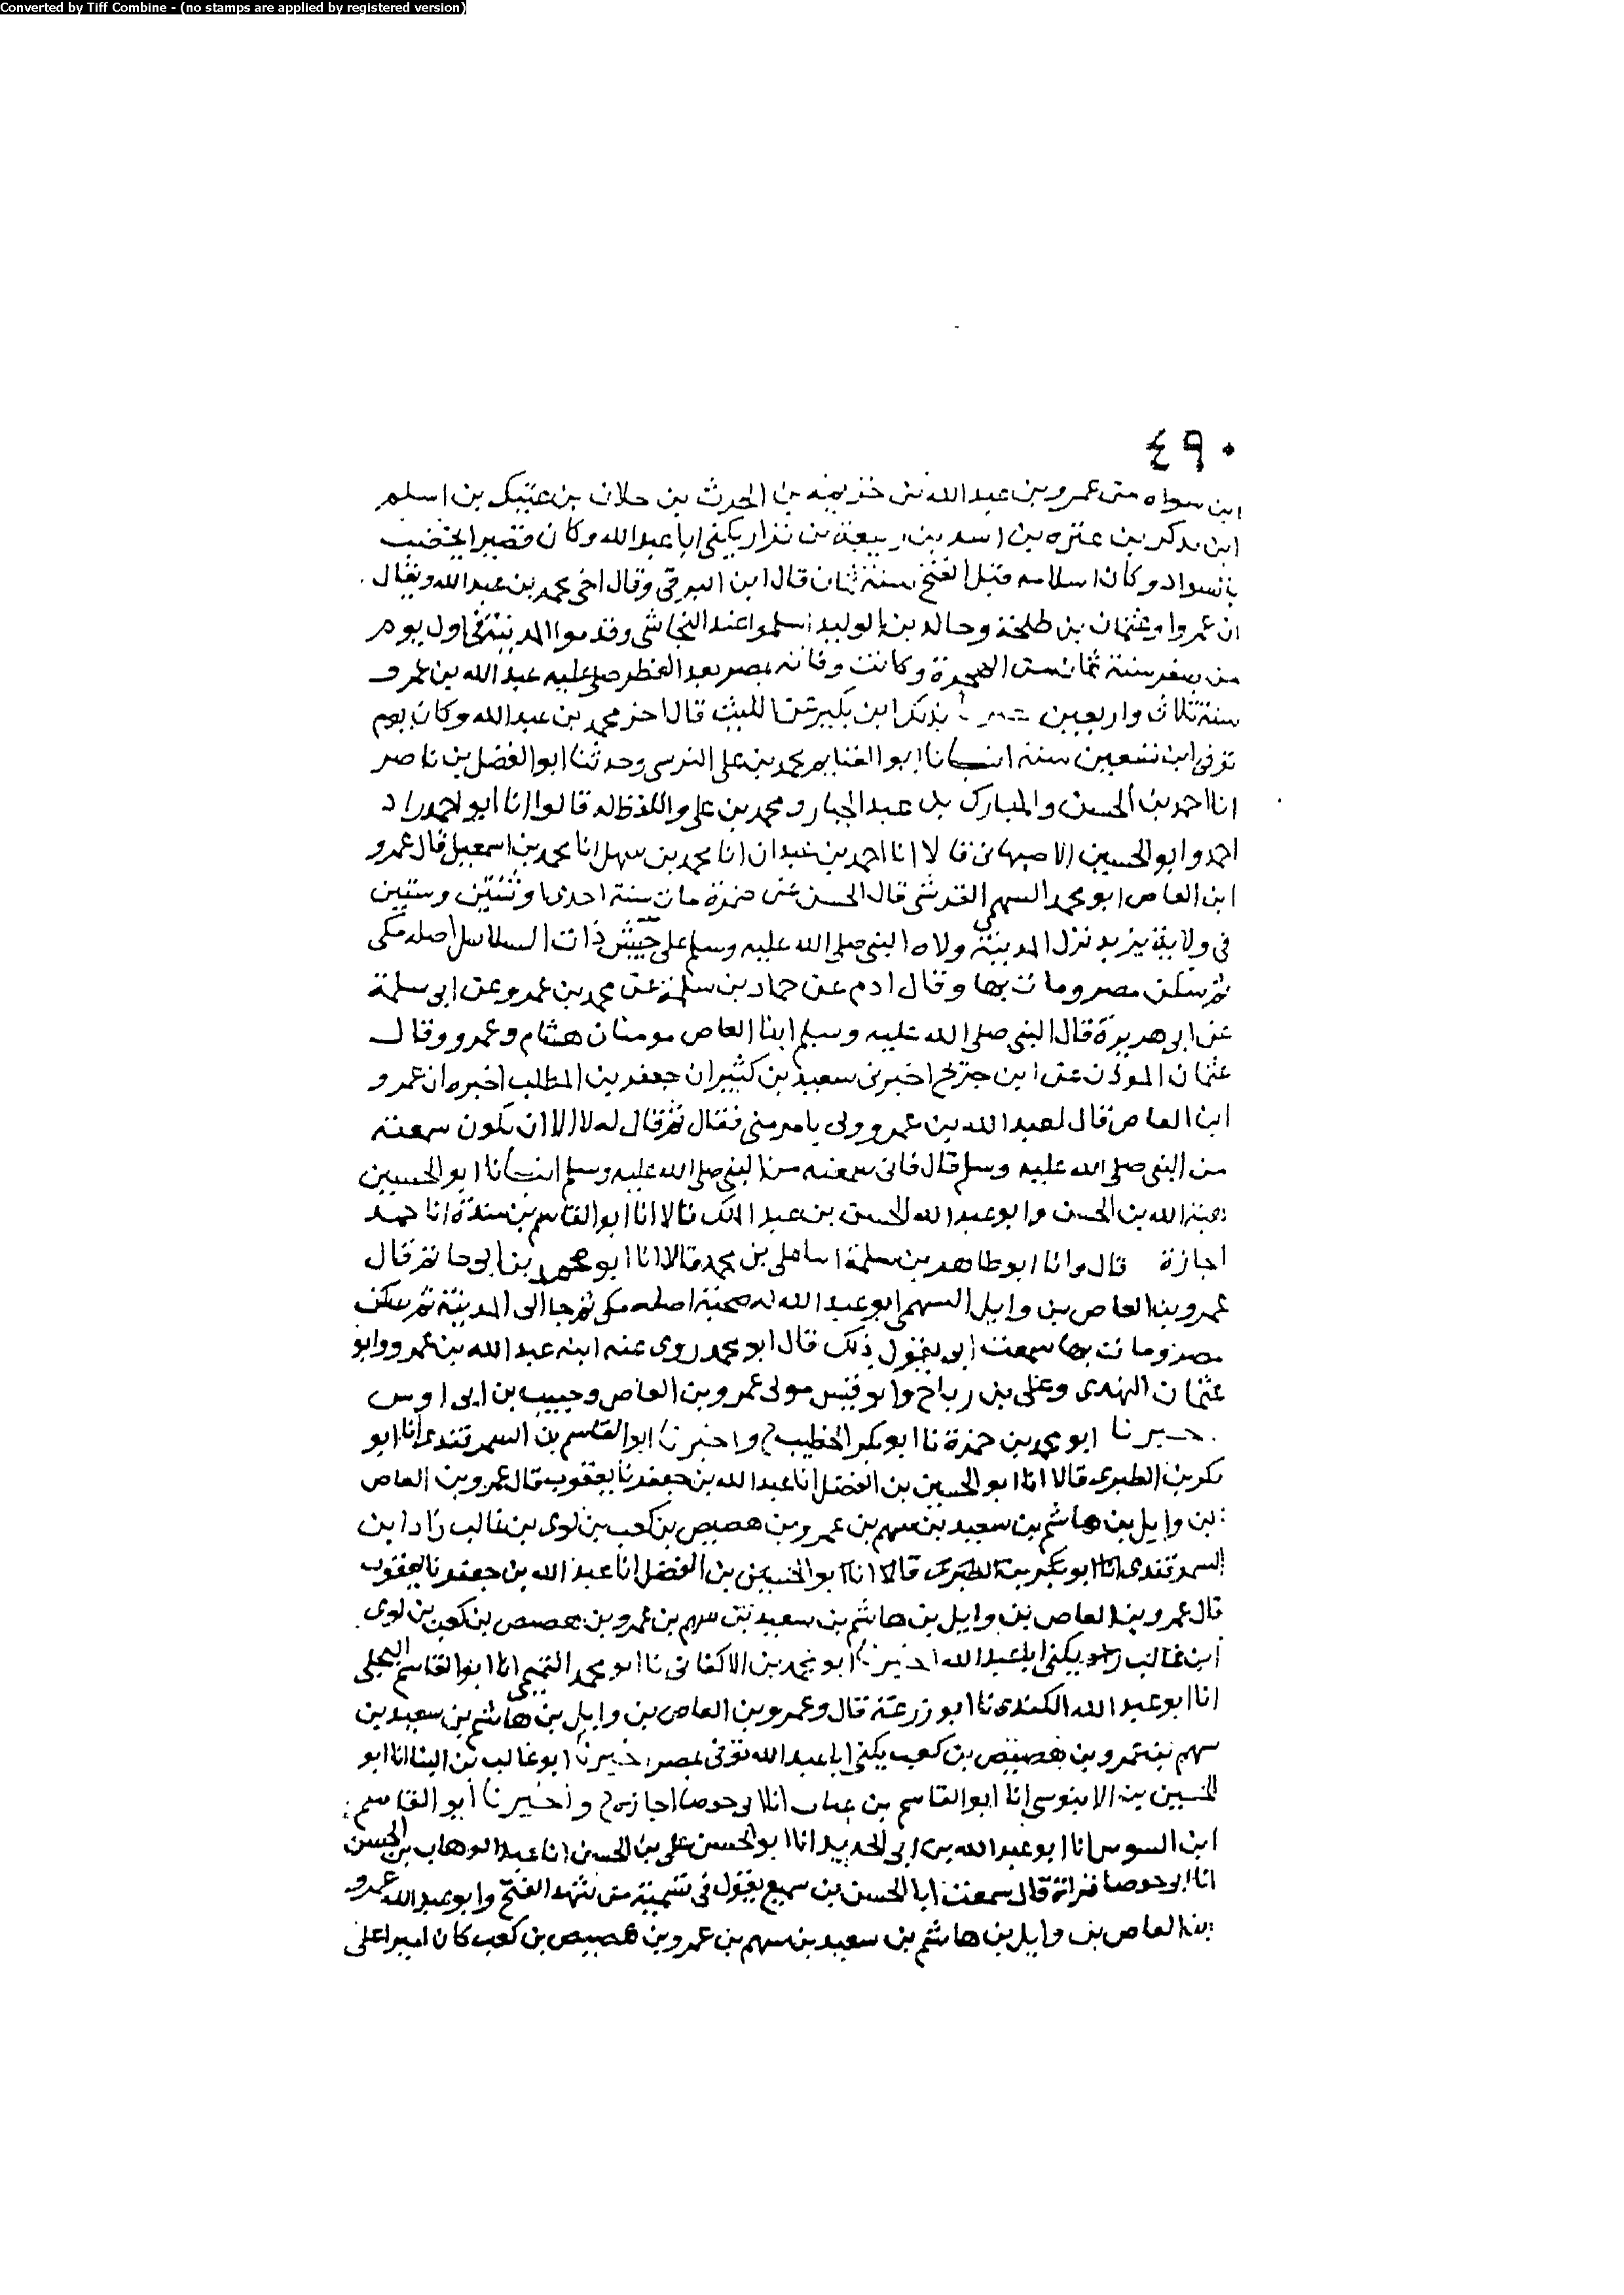 Converted by Tiff Combine - (no stamps are applied by registered version)
٤٩٠
ابن سواه من عمرو بن عبد الله بن خزيمه بن الحرث بن حلان بن عتيك بن اسلم
ابن يذكر بن عنزه بن اسد بن ربيعة بن نزار يكنى ابا عبد الله وكان قصيرا يخضب
بالسواد وكان اسلامه قبل الفتح سنة ثمان قال ابن البرقي وقال اخي محمد بن عبد الله ويقال
ان عمروا وعثمان بن طلحة وخالد بن الوليد اسلموا عند النجاشي وقدموا المدينة في اول يوم
من صفر سنة ثمان من الهجرة وكانت وفاته بمصر بعد الفطر صلى عليه عبد الله بن عمرو
سنة ثلاث واربعين بذكر ابن بكير عن الليث قال اخي محمد بن عبد الله وكان يوم
توفي ابن تسعين سنة انبانا ابو الغنايم محمد بن علي النرسي وحدثنا ابو الفضل بن ناصر
انا احمد بن الحسن والمبارك بن عبد الجبار ومحمد بن علي واللفظ له قالوا انا ابو احمد زاد
احمد وابو الحسين الاصبهاني قالا انا احمد بن عبدان انا محمد بن سهل انا محمد بن اسمعيل قال عمرو
ابن العاص ابو محمد السهمي القرشي قال الحسن عن ضمرة مات سنة احدى او ثنتين وستين
في ولاية يزيد نزل المدينة ولاه النبي صلى الله عليه وسلم على جيش ذات السلاسل اصله مكي
ثم سكن مصر ومات بها وقال ادم عن حماد بن سلمة عن محمد بن عمرو عن ابي سلمة
عن ابي هريرة قال النبي صلى الله عليه وسلم ابنا العاص مومنان هشام وعمرو وقال
عثمان الموذن عن ابن جريج اخبرني سعيد بن كثير ان جعفر بن المطلب اخبره ان عمرو
ابن العاص قال لعبد الله بن عمرو في يام منى فقال ثم قال له لا الا ان يكون سمعته
من النبي صلى الله عليه وسلم قال فاني سمعته من النبي صلى الله عليه وسلم انبانا ابو الحسين
هبة الله بن الحسن وابو عبد الله الحسين بن عبد الملك قالا انا ابو القاسم بن مندة انا حمد
اجازة قال وانا ابو طاهر بن سلمة انا علي بن محمد قالا انا ابو محمد بن ابي حاتم قال
عمرو بن العاص بن وايل السهمي ابو عبد الله له صحبة اصله مكي ثم جا الى المدينة ثم سكن
مصر ومات بها سمعت ابي يقول ذلك قال ابو محمد روى عنه ابنه عبد الله بن عمرو وابو
عثمان النهدي وعلى بن رباح وابو قيس مولى عمرو بن العاص وحبيب بن ابي اوس
اخبرنا ابو محمد بن حمزة نا ابو بكر الخطيب ح واخبرنا ابو القاسم بن السمرقندي انا ابو
بكر بن الطبري قالا انا ابو الحسين بن الفضل انا عبد الله بن جعفر نا يعقوب قال عمرو بن العاص
ابن وايل بن هاشم بن سعيد بن سهم بن عمرو بن هصيص بن كعب بن لوي بن غالب زاد ابن
السمرقندي انا ابو بكر بن الطبري قالا انا ابو الحسين بن الفضل انا عبد الله بن جعفر نا يعقوب
قال عمرو بن العاص بن وايل بن هاشم بن سعيد بن سهم بن عمرو بن هصيص بن كعب بن لوي
ابن غالب يكنى ابا عبد الله اخبرنا ابو محمد بن الاكفاني نا ابو محمد التميمي انا ابو القاسم البجلي
انا ابو عبد الله الكندي نا ابو زرعة قال وعمرو بن العاص بن وايل بن هاشم بن سعيد بن
سهم بن عمرو بن هصيص بن كعب يكنى ابا عبد الله توفي بمصر اخبرنا ابو غالب بن البنا انا ابو
الحسين بن الابنوسي انا ابو القاسم بن عتاب انا ابن جوصا اجازة ح واخبرنا ابو القاسم
ابن السوسي انا ابو عبد الله بن ابي الحديد انا ابو الحسن علي بن الحسن انا عبد الوهاب بن الحسن
انا ابن جوصا قراة قال سمعت ابا الحسن بن سميع يقول في تسمية من شهد الفتح وابو عبد الله عمرو
بن العاص بن وايل بن هاشم بن سعيد بن سهم بن عمرو بن هصيص بن كعب كان اميرا على